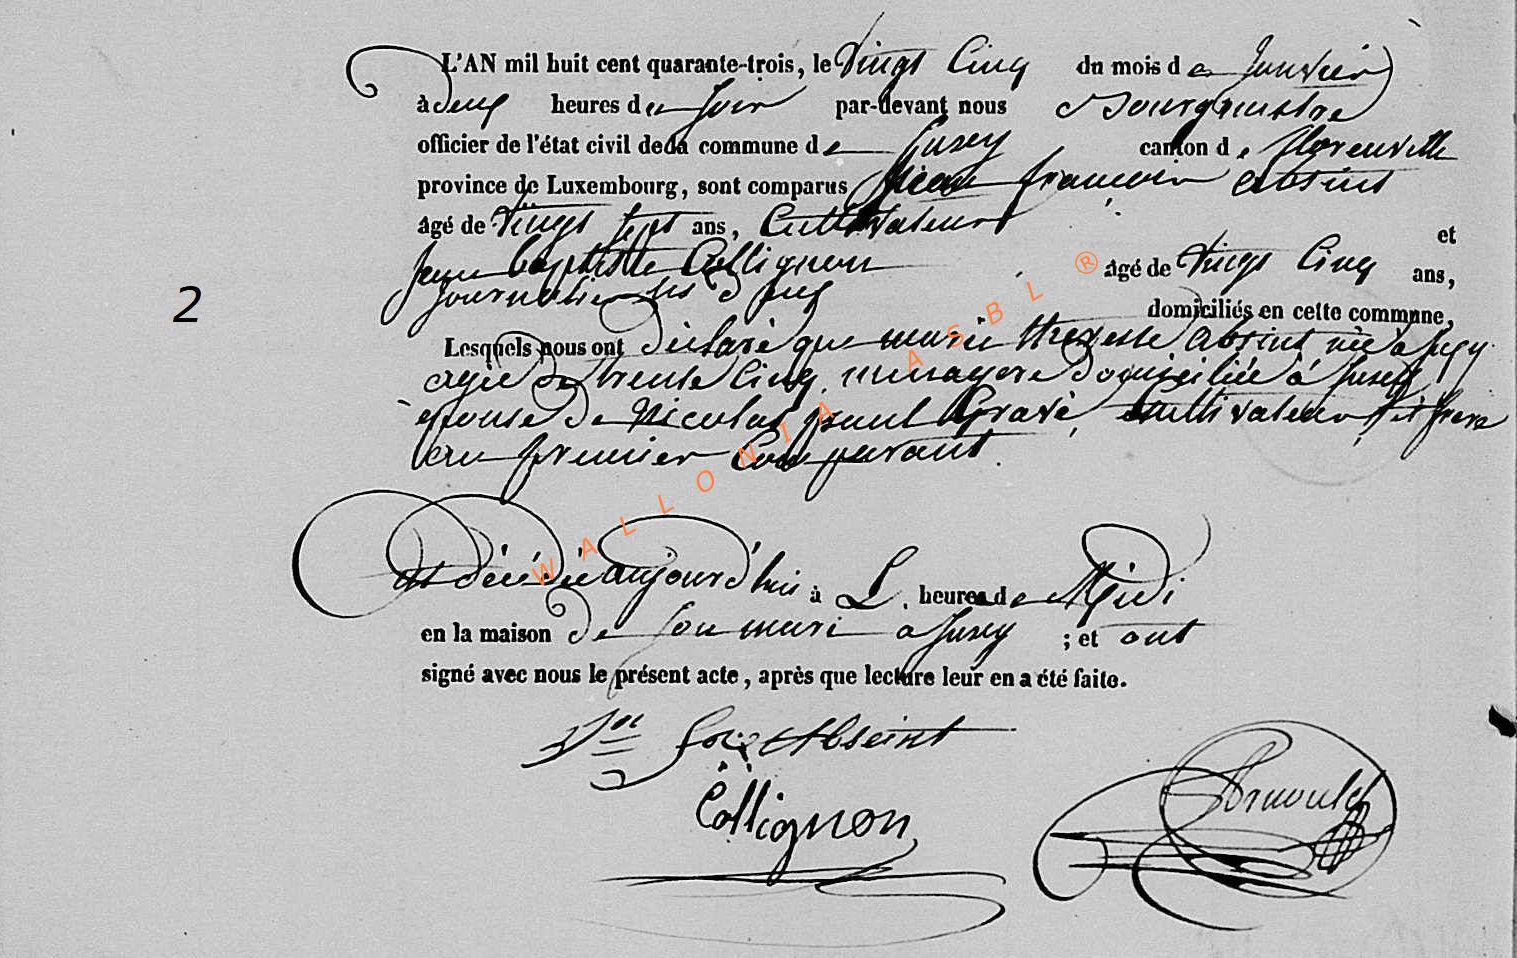 L'AN mil huit cent quarante-trois, le Vingt Cinq du mois de Janvier
à deux heures du Soir par-devant nous Bourgmestre
officier de l'état civil de la commune de Jusey canton de florenville
province de Luxembourg, sont comparus Jean françois Absint
âgé de Vingt sept ans, Cultivateur
et
Jean Baptiste Collignon âgé de Vingt Cinq ans,
journalier
domiciliés en cette commune,
2
Lesquels nous ont déclaré que marie theresse Absint née a Jusey
agée de trente Cinq, menagere domiciliée à Jusey
épouse de Nicolas paul Gravé, cultivateur et frere
au premier Comparant.
est décédée aujourd'hui à L. heures de Midi
en la maison de son mari a Jusey ; et ont
signé avec nous le présent acte, après que lecture leur en a été faite.
Jn fois Abseint
Collignon
WALLONIA ASBL ®